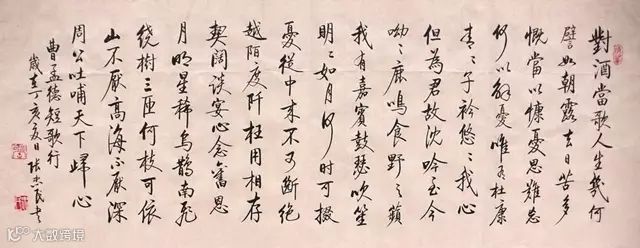 對酒當歌人生幾何
譬如朝露去日苦多
慨當以慷憂思難忘
何以解憂唯有杜康
青〻子衿悠〻我心
但為君故沈吟至今
呦〻鹿鳴食野之蘋
我有嘉賓鼓瑟吹笙
明〻如月何时可掇
憂從中来不可斷絕
越陌度阡枉用相存
契闊談宴心念舊恩
月明星稀烏鵲南飛
繞樹三匝何枝可依
山不厭高海不厭深
周公吐哺天下歸心
曹孟德短歌行
歲在丁亥夏日
大数跨境